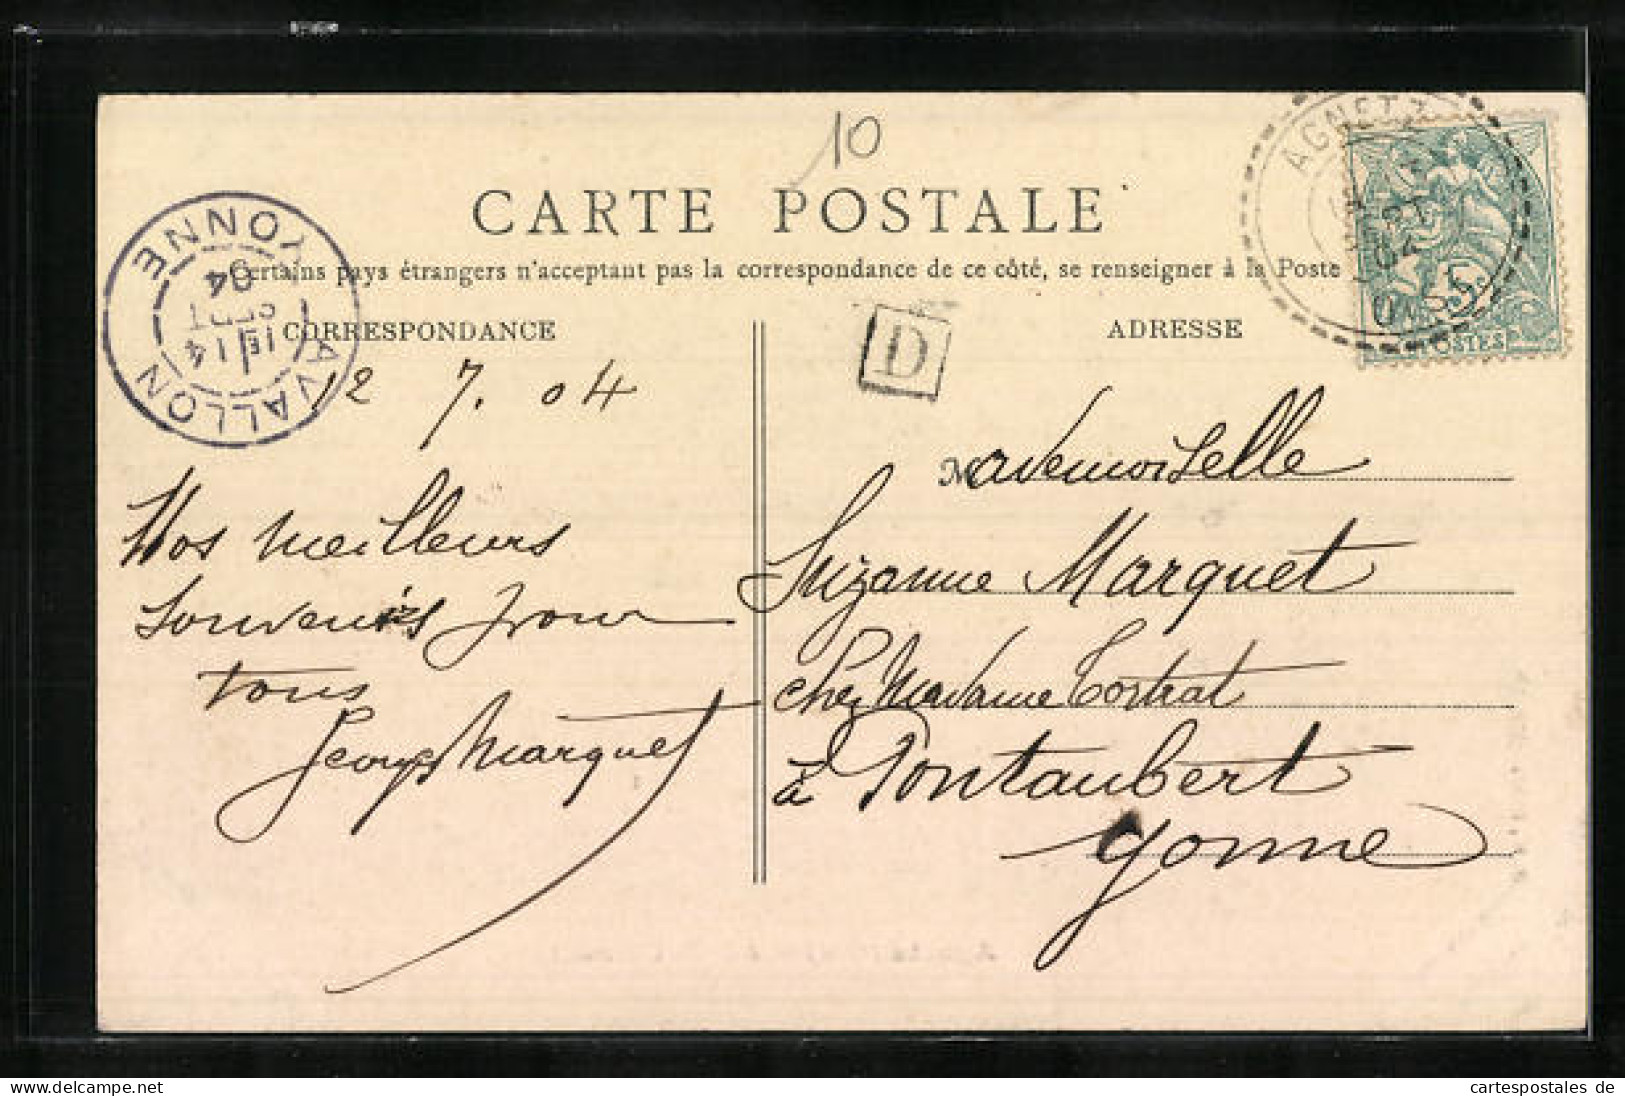 10
CARTE POSTALE
Certains pays étrangers n'acceptant pas la correspondance de ce côté, se renseigner à la Poste
CORRESPONDANCE
ADRESSE
D
AGNETZ
OISE
5
POSTES
AVALLON
YONNE
14
04
12 7. 04
Nos meilleurs
souvenirs pour
tous
Georges Marquet
Mademoiselle
Suzanne Marquet
chez Madame Tortrat
à Pontaubert
Yonne
www.cartespostales.de
cartespostales de